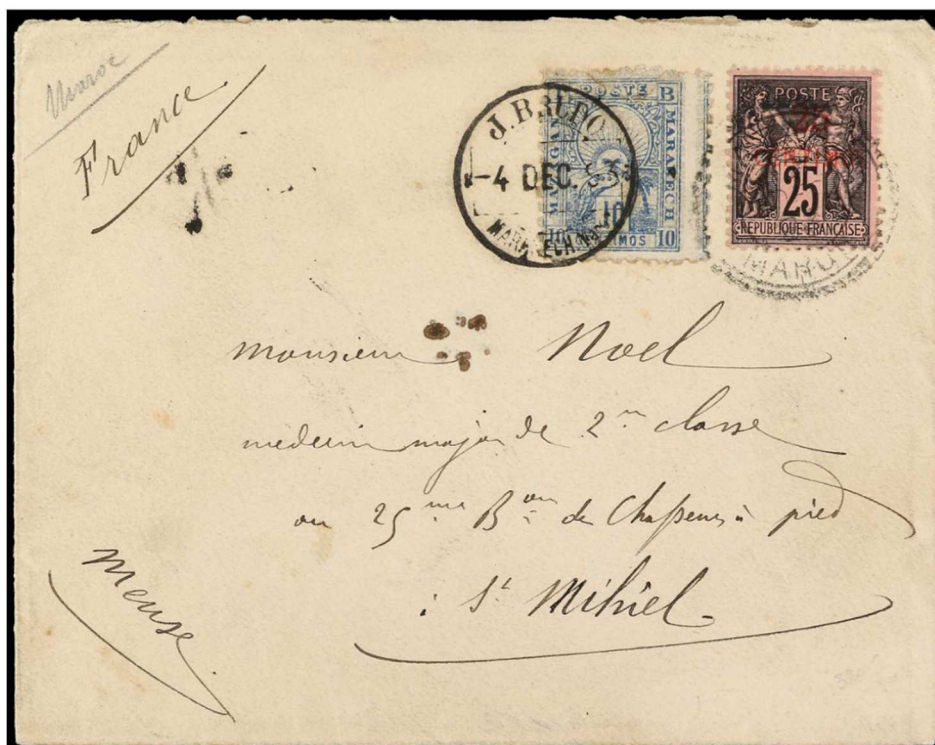 Maroc
France
J. BRUDO
-4 DEC. 93
MARAKECH
POSTE B
MAZAGAN
MARAKECH
10
10 10
POSTE
25
CENTIMOS
25
REPUBLIQUE FRANÇAISE
MAROC
monsieur Noel
medecin major de 2me classe
au 25me Bon de Chasseurs à pied
à St Mihiel
Meuse